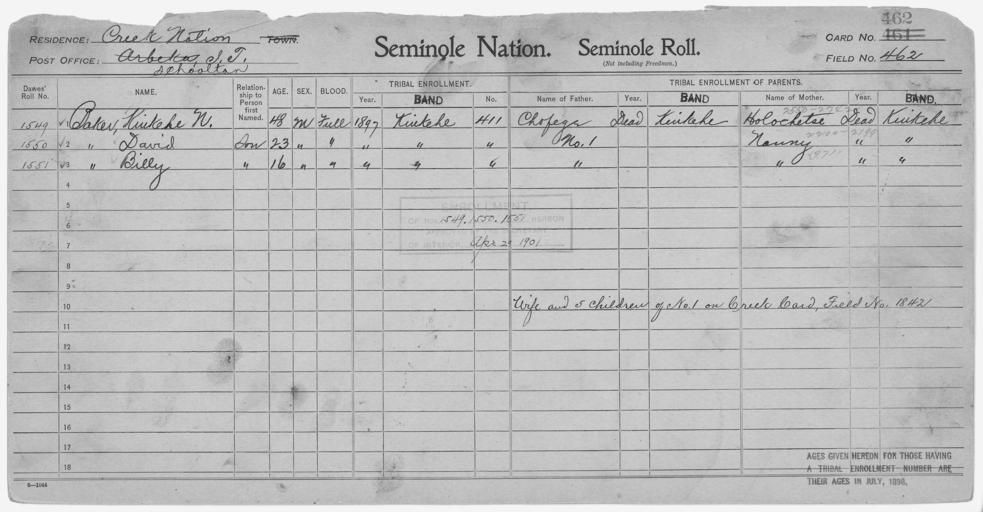 462
RESIDENCE: Creek Nation TOWN. Seminole Nation. Seminole Roll. CARD NO. 461
POST OFFICE: Arbeka, I.T. (Not including Freedmen.) FIELD NO. 462
Schooltan
Dawes' Roll No. NAME. Relationship to Person first Named. AGE. SEX. BLOOD. TRIBAL ENROLLMENT. TRIBAL ENROLLMENT OF PARENTS.
Year. BAND No. Name of Father. Year. BAND Name of Mother. Year. BAND.
1549 1 Baker, Kinkehe N. 48 M Full 1897 Kinkehe 411 Chofega Dead Kinkehe Holochetse Dead Kinkehe
1550 2 " David Son 23 " " " " " No. 1 Nanny " "
1551 3 " Billy " 16 " " " " " " " " "
4
5
ENROLLMENT
6 OF NOS. 1549, 1550, 1551 HEREON
APPROVED BY THE SECRETARY
7 OF INTERIOR Apr 29 1901
8
9
10 Wife and 5 children of No. 1 on Creek Card, Field No. 1842
11
12
13
14
15
16
17
18
AGES GIVEN HEREON FOR THOSE HAVING
A TRIBAL ENROLLMENT NUMBER ARE
THEIR AGES IN JULY, 1898.